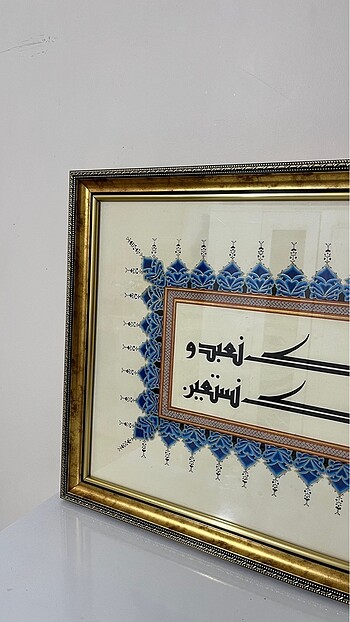 نعبد و
نستعين